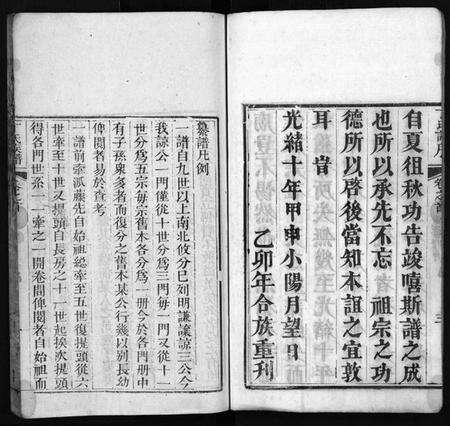 自夏徂秋功告竣嘻斯譜之成
也所以承先不忘 祖宗之功
德所以啓後當知本誼之宜敦
耳 旹
光緒十年甲申小陽月望日
乙卯年合族重刊
三
纂譜凡例
一譜自九世以上南北攸分已列明謙讓諒三公今
我諒公一門僅從十世分爲三門每一門又從十一
世分爲五宗每宗舊本各分爲一冊今於各門冊中
有子孫衆多者而復分之舊本某公行幾以別長幼
俾閱者易於查考
一譜前牽派藤先自始祖總牽至五世復提頭從六
世牽至十世又提頭自長房之十一世起挨次提頭
得各門世系一一牽之一開卷間俾閱者自始祖而